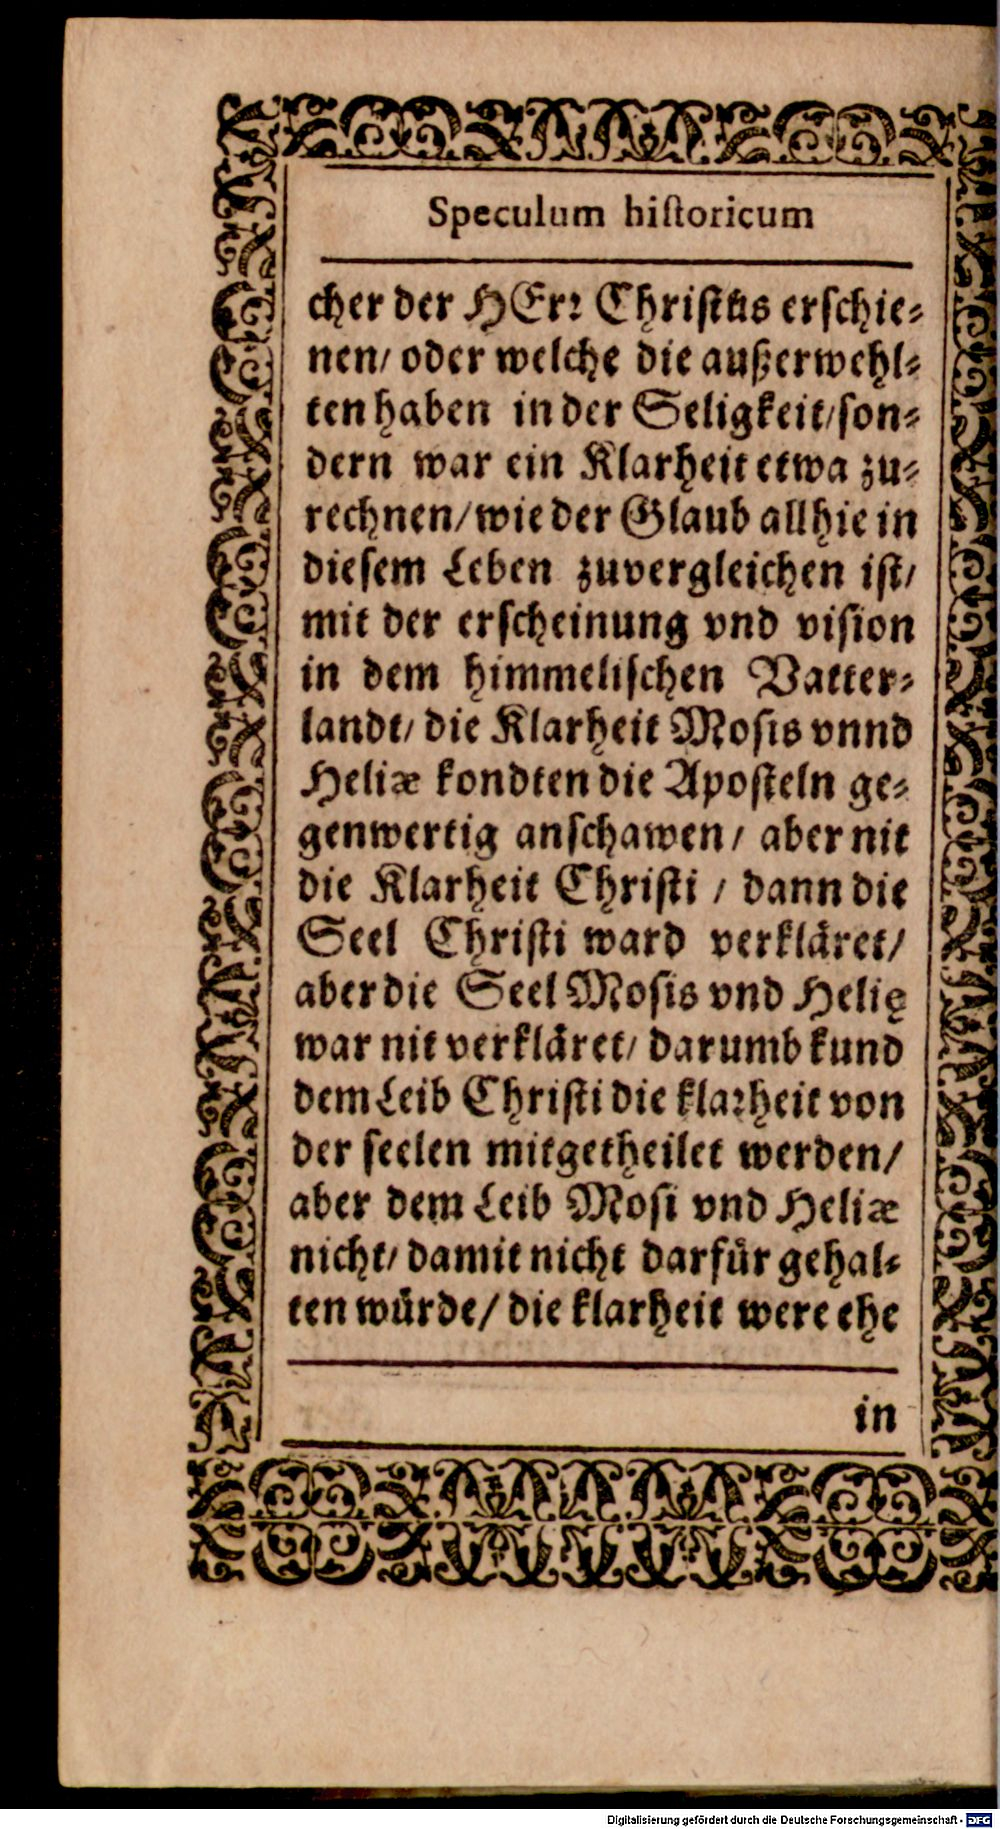 Speculum hiſtoricum
cher der HErꝛ Chriſtus erſchie⸗
nen/ oder welche die außerwehl⸗
ten haben in der Seligkeit/ ſon⸗
dern war ein Klarheit etwa zu⸗
rechnen/ wie der Glaub allhie in
dieſem Leben zuvergleichen iſt/
mit der erſcheinung vnd viſion
in dem himmeliſchen Vatter⸗
landt/ die Klarheit Moſis vnnd
Heliæ kondten die Apoſteln ge⸗
genwertig anſchawen/ aber nit
die Klarheit Chriſti / dann die
Seel Chriſti ward verkläret/
aber die Seel Moſis vnd Helię
war nit verkläret/ darumb kund
dem Leib Chriſti die klaꝛheit von
der ſeelen mitgetheilet werden/
aber dem Leib Moſi vnd Heliæ
nicht/ damit nicht darfür gehal⸗
ten würde/ die klarheit were ehe
in
Digitalisierung gefördert durch die Deutsche Forschungsgemeinschaft - DFG